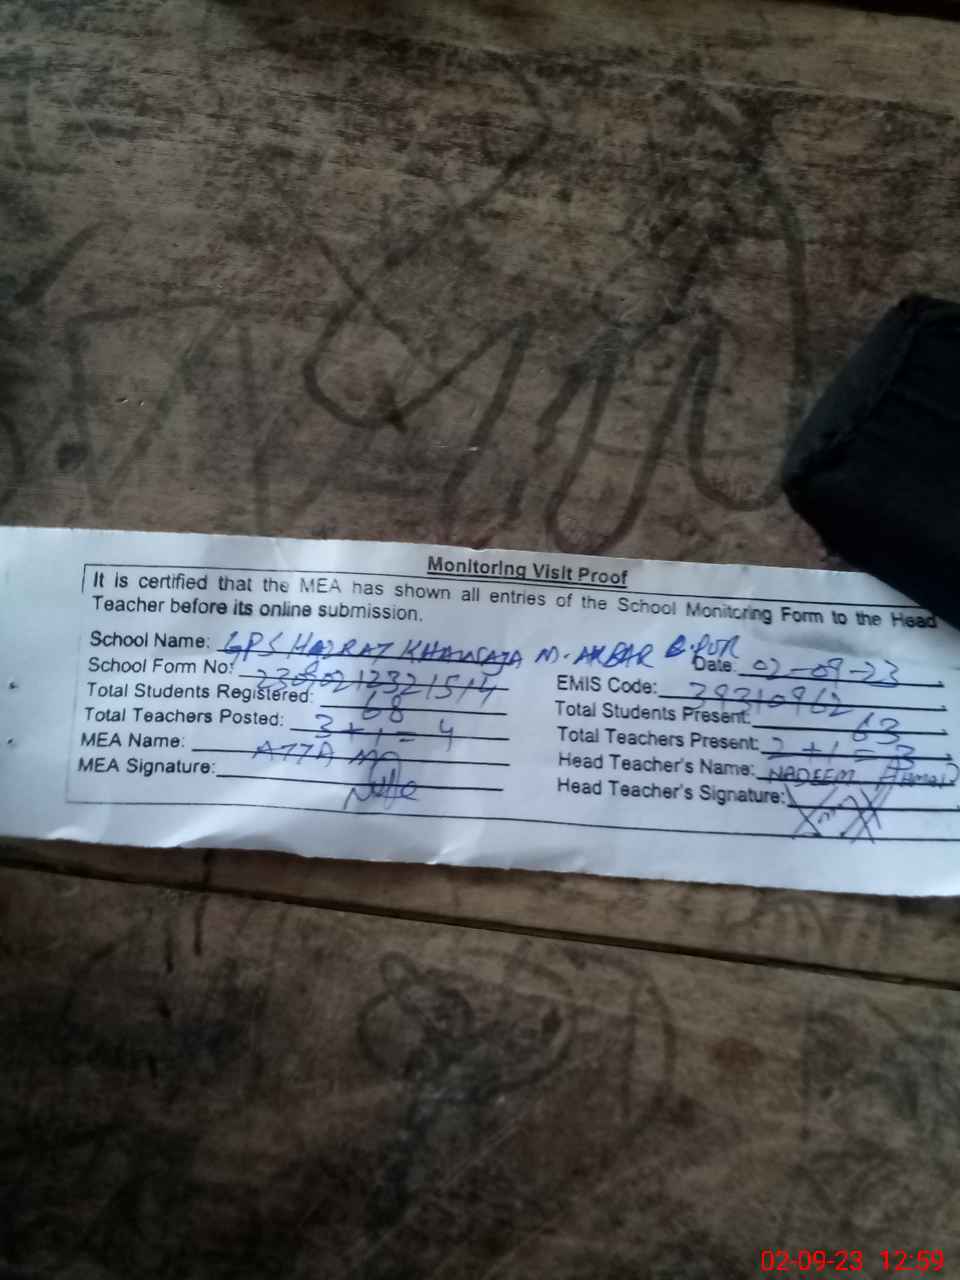 Monitoring Visit Proof
It is certified that the MEA has shown all entries of the School Monitoring Form to the Head
Teacher before its online submission.
School Name: GPS HAZRAT KHAWAJA M. AKBAR B.PUR Date: 02-09-23
School Form No: EMIS Code:
Total Students Registered: 68 Total Students Present: 63
Total Teachers Posted: 3+1=4 Total Teachers Present: 2+1=3
MEA Name: ATTA Head Teacher's Name: NADEEM AHMAD
MEA Signature: Head Teacher's Signature:
02-09-23 12:59